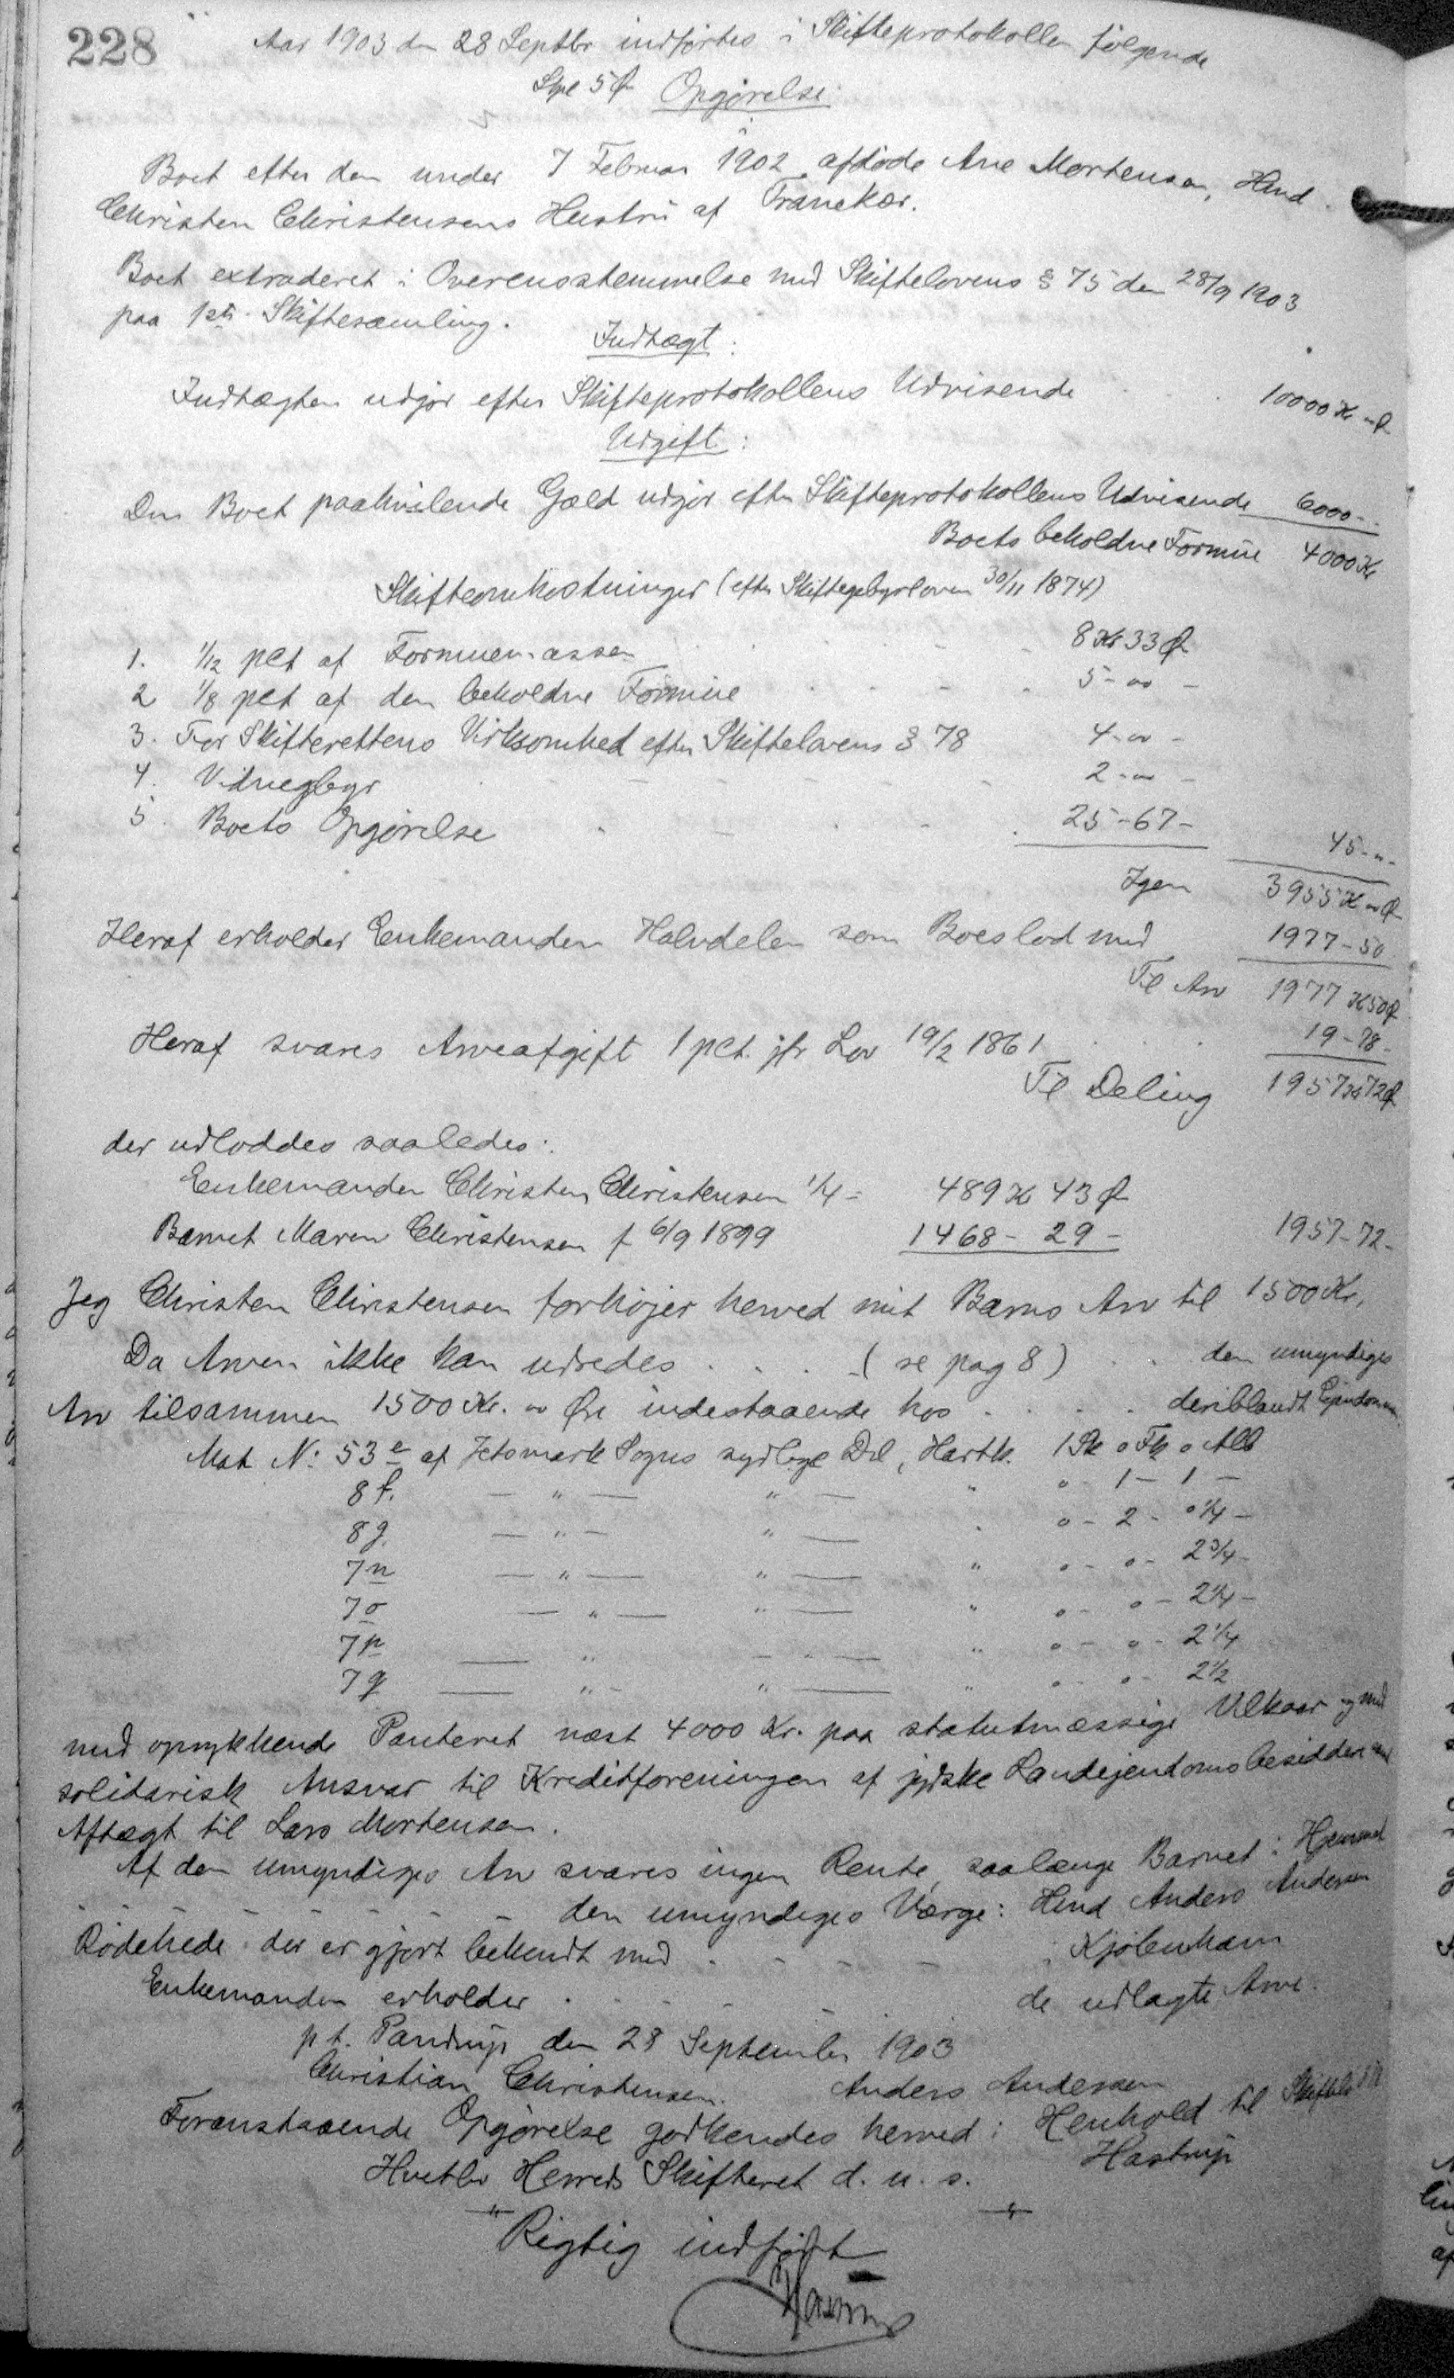 228
Aar 1903 den 28 Septbr indførtes i Skifteprotokollen følgende
Spl 5 Ø Opgjørelse:
Boet efter den under 7 Februar 1902 afdøde Ane Mortensen, Hmd.
Christen Christensens Hustru af Tranekær.
Boet extraderet i Overensstemmelse med Skiftelovens § 75 den 28/9 1903
paa 1ste Skiftesamling.
Indtægt:
Indtægten udgjør efter Skifteprotokollens Udvisende . . 10000 Kr " Ø
Udgift:
Den Boet paahvilende Gæld udgjør efter Skifteprotokollens Udvisende 6000 - -
Boets beholdne Formue 4000 Kr
Skifteomkostninger (efter Skiftegebyrloven 30/11 1874)
1. 1/12 pCt af Formuemassen 8 Kr 33 Ø
2 1/8 pCt af den beholdne Formue 5 - " -
3. For Skifterettens Virksomhed efter Skiftelovens § 78 4 - " -
4. Vidnegebyr 2 - " -
5. Boets Opgjørelse 25 - 67 - 45 - " -
Igen 3955 K " Ø
Heraf erholder Enkemanden Halvdelen som Boeslod med 1977 - 50
Til Arv 1977 K 50 Ø
Heraf svares Arveafgift 1 pCt. jfr Lov 19/2 1861 19 - 78 -
Til Deling 1957 Kr 72 Ø
der udloddes saaledes:
Enkemanden Christen Christensen 1/4 = 489 K 43 Ø
Barnet Maren Christensen f 6/9 1899 1468 - 29 - 1957 - 72 -
Jeg Christen Christensen forhøjer herved mit Barns Arv til 1500 Kr.
Da Arven ikke kan udredes . . . . (se pag 8) . . den umyndiges
Arv tilsammen 1500 Kr. " Øre indestaaende hos . . . . . deriblandt Ejendommen
Mat No: 53e af Jetsmark Sogns sydlige Del, Hartk. 1 Sk 0 Fk 0 Alb
8 f. — " — " — " 0 1 - 1 -
8 g. — " — " — " 0 - 2 - 0 1/4 -
7 n — " — " — " 0 - 0 - 2 3/4 -
7 o — " — " — " 0 - 0 - 2 1/4 -
7 p — " — " — " 0 - 0 - 2 1/4
7 q — " — " — " 0 - 0 - 2 1/2
med oprykkende Panteret næst 4000 Kr. paa statutmæssige Vilkaar og med
solidarisk Ansvar til Kreditforeningen af jydske Landejendomsbesiddere
Aftægt til Lars Mortensen.
Af den umyndiges Arv svares ingen Rente, saalænge Barnet i Hjemmet
. . . . . . den umyndiges Værge: Hmd Anders Andersen
Rødehede der er gjort bekendt med . . . . Kjøbenhavn
Enkemanden erholder . . . . . . de udlagte Arve.
pt. Pandrup den 28 September 1903
Christian Christensen. Anders Andersen
Foranstaaende Opgørelse godkendes herved i Henhold til
Hvetbo Herreds Skifteret d. u. s. Hastrup
Rigtig indført